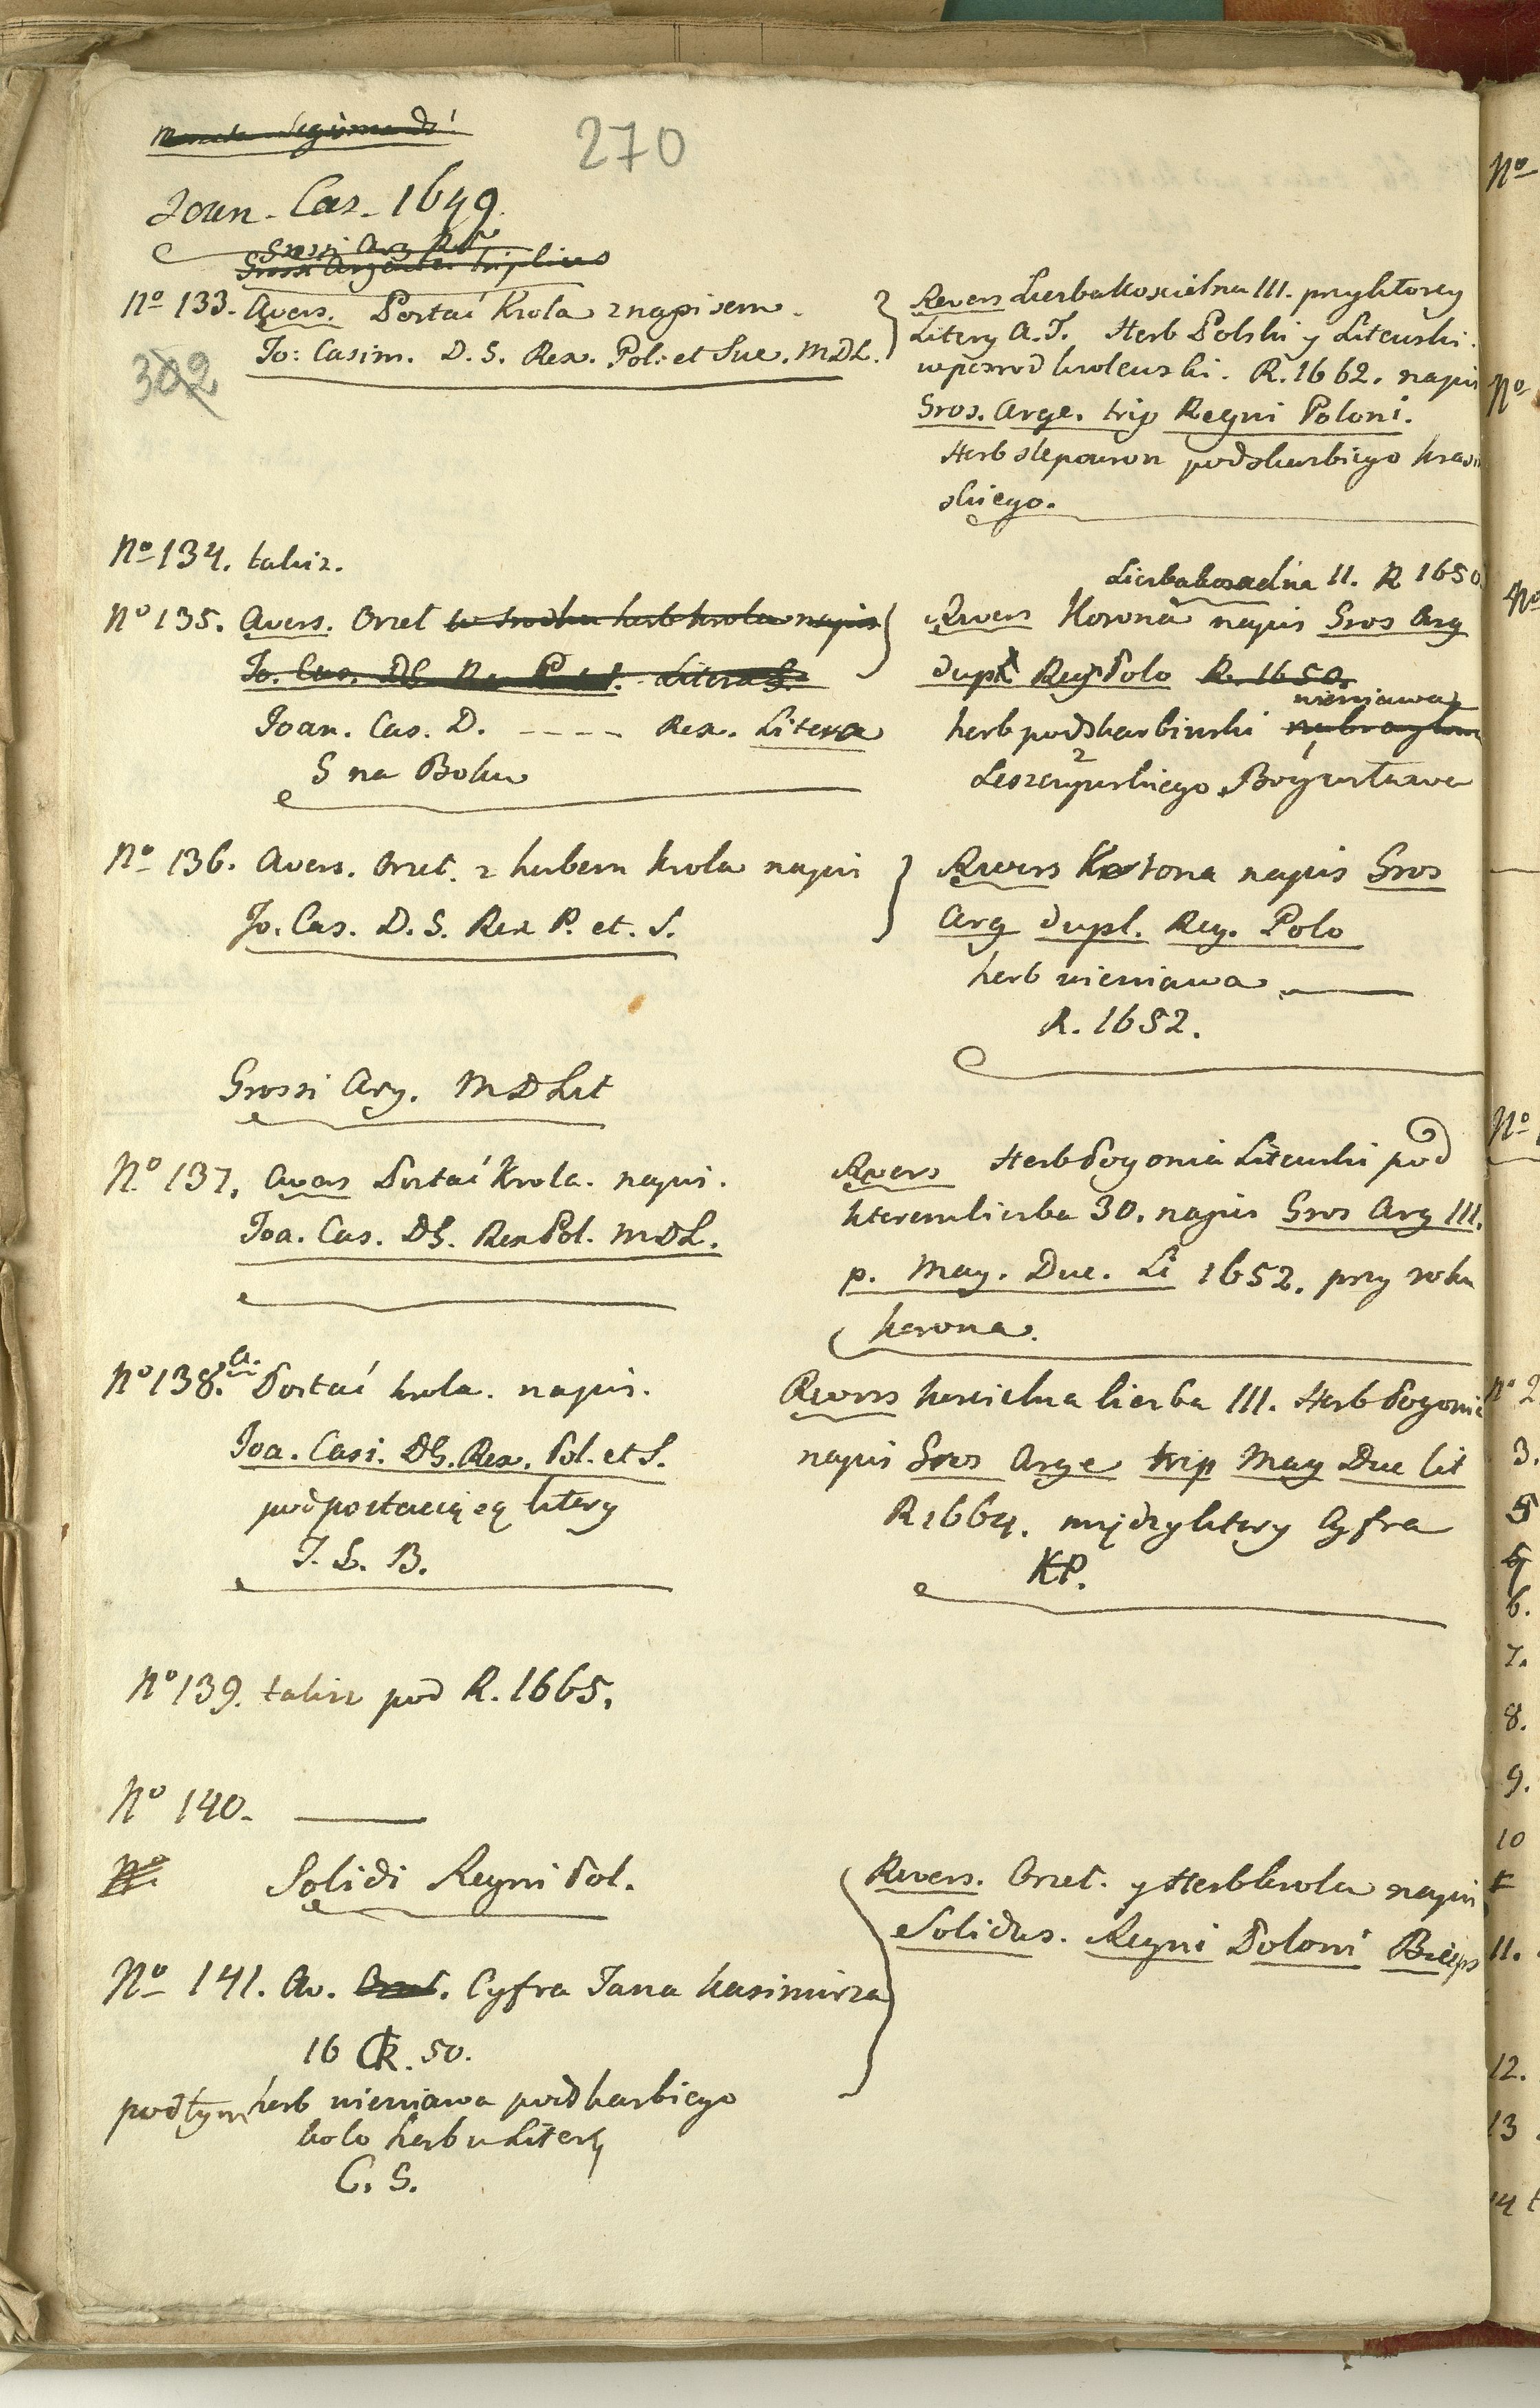 270
Joan. Cas. 1649.
Grossi Arg R P
Grossi Argentei triplices
No 133. Avers. Postać Krola z napisem.
Jo: Casim. D. G. Rex. Pol: et Sue. MDL.
302
Revers Liczba koscielna III. przy ktorey
Litery A.T. Herb Polski y Litewski.
w posrod krolewski. R. 1662. napis
Gros. Arge. trip Regni Poloni.
Herb slepowron podskarbiego kras
skiego.
No 134. takiz.
No 135. Avers. Orzeł w srodku herb krola napis
Jo. Cas. DG Rex Litera G.
Joan. Cas. D. ---- Rex. Litera
G na Boku
Liczba koscielna 11. R 1650
Revers Korona napis Gros Arg
dupl Reg Polo R. 1650.
nieniawa
herb podskarbinski
2 1
Leszczynskiego Bogusława
No 136. Avers. Orzeł. z herbem Krola napis
Jo. Cas. D. G. Rex P. et. S.
Revers Korona napis Gros
Arg dupl. Reg. Polo
herb nieniawa
R. 1652.
Grossi Arg. MDLit
No 137. Avers Postać Krola. napis.
Joa. Cas. DG. Rex Pol. MDL.
Revers Herb Pogonia Litewski pod
kterem liczba 30. napis Gros Arg III.
p. Mag. Duc. Li 1652. przy roku
korona.
No 138. a. Postać krola. napis.
Joa. Casi. DG. Rex. Pol. et S.
pod postacią są litery
T. L. B.
Revers koscielna liczba III. Herb Pogonia
napis Gros Arge trip Mag Duc Lit
R 1664. między litery Cyfra
KP.
No 139. takiz pod R. 1665.
No 140.
No
Solidi Regni Pol.
No 141. Av. Orzeł. Cyfra Jana Kasimirza
16 CR. 50.
pod tym herb nieniawa podskarbiego
kolo herbu Litery
C. G.
Revers. Orzeł. y Herb krola napis
Solidus. Regni Poloni
No
No
No
No
No 2
3.
5
6.
7.
8.
9.
10
11.
12.
13
14